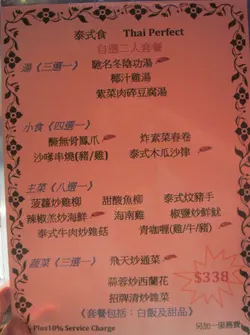 泰式食 Thai Perfect
自選二人套餐
湯《三選一》 馳名冬陰功湯
椰汁雞湯
紫菜肉碎豆腐湯
小食《四選一》
酸辣無骨鳳爪 炸素菜春卷
沙嗲串燒(豬/雞) 泰式木瓜沙律
主菜《八選一》
菠蘿炒雞柳 甜酸魚柳 泰式炆豬手
辣椒羔炒海鮮 海南雞 椒鹽炒鮮魷
泰式牛肉炒雜菇 青咖喱(雞/牛/豬)
蔬菜《三選一》 飛天炒通菜
蒜蓉炒西蘭花
招牌清炒雜菜
$338
《套餐包括：白飯及甜品》
Plus10% Service Charge 另加一服務費